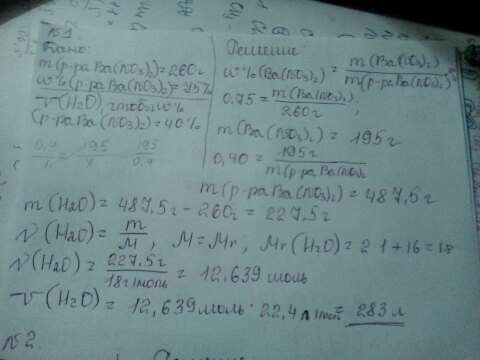 №1.
Дано:
m(р-ра Ba(NO3)2)=260г
w%(р-ра Ba(NO3)2)=75%
V(H2O), чтобы w%
(р-ра Ba(NO3)2)=40%
0,4/1 = 195/x 195/0.4
Решение
w%(Ba(NO3)2) = m(Ba(NO3)2)/m(р-ра Ba(NO3)2)
0.75 = m(Ba(NO3)2)/260г ;
m(Ba(NO3)2) = 195г
0,40 = 195г/m(р-ра Ba(NO3)2
m(р-ра Ba(NO3)2) = 487,5г
m(H2O) = 487,5г - 260г = 227,5г
ν(H2O) = m/M, M=Mr, Mr(H2O) = 2·1+16=18
ν(H2O) = 227,5г/18г/моль = 12,639 моль
V(H2O) = 12,639 моль · 22,4 л/моль = 283 л
№2.